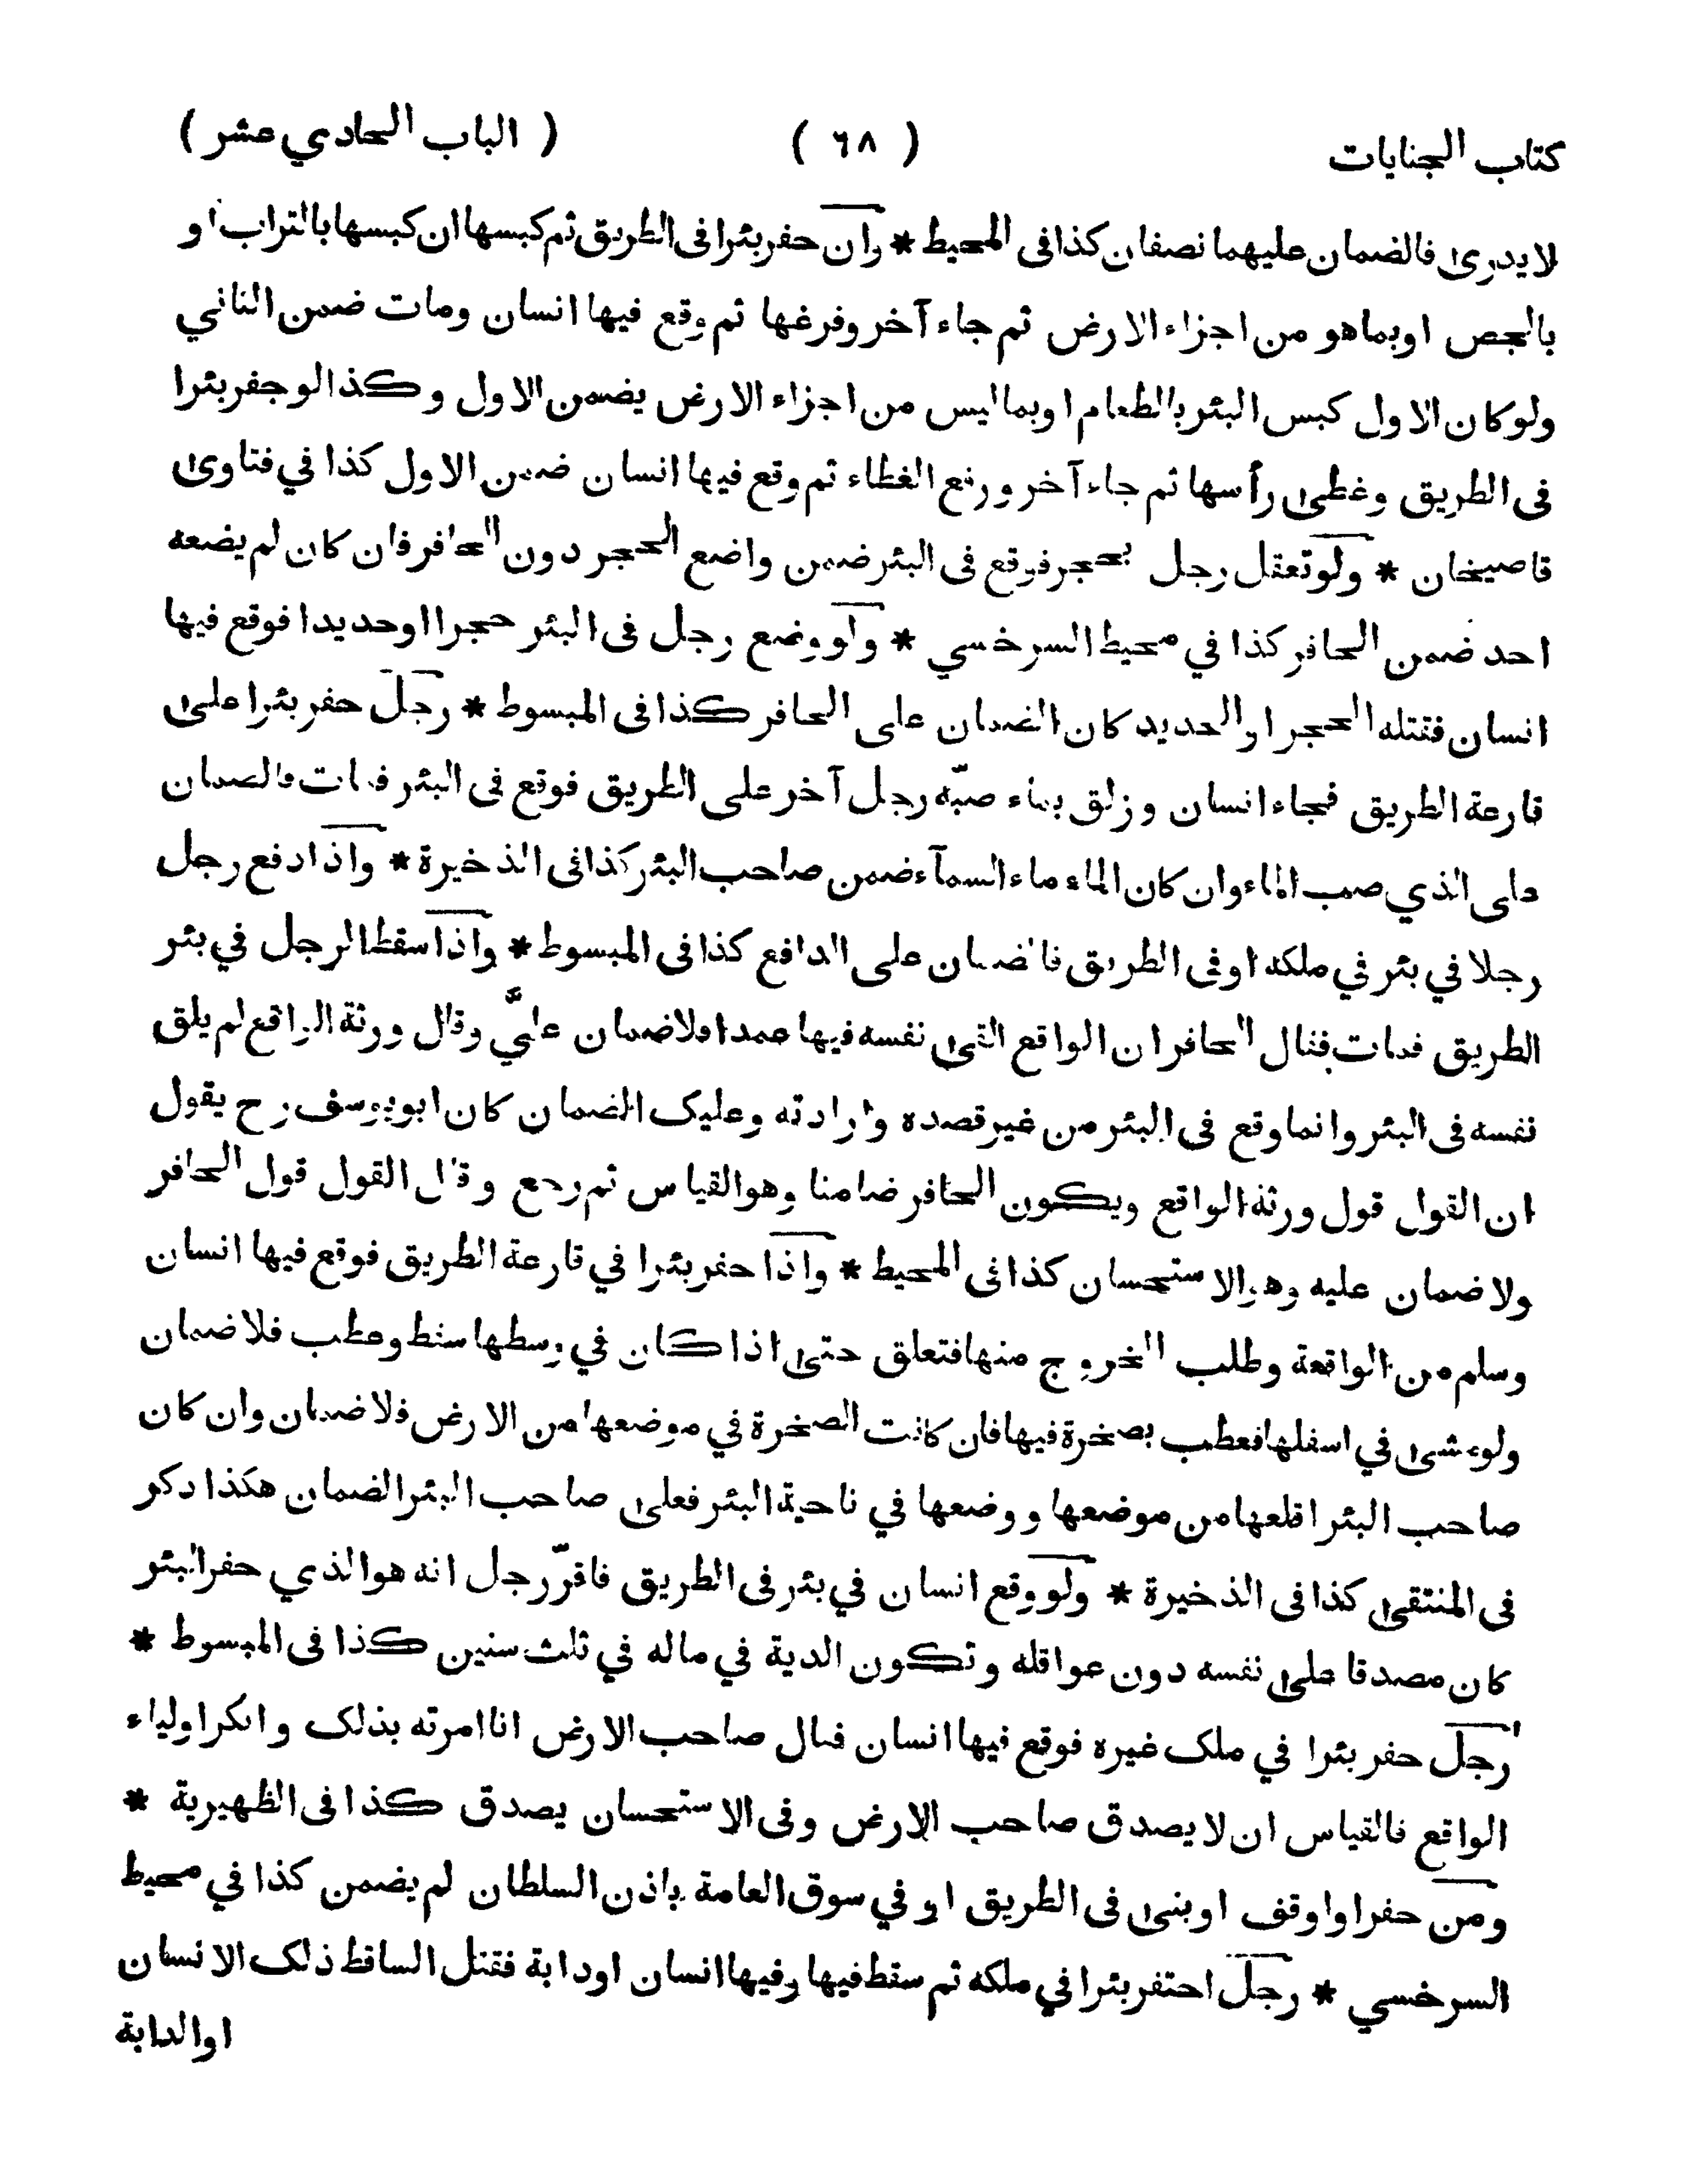 كتاب الجنايات ( ٦٨ ) ( الباب الحادي عشر )
لا يدرى فالضمان عليهما نصفان كذا فى المحيط * وان حفر بئرا فى الطريق ثم كبسها ان كبسها بالتراب او
بالجص اوبما هو من اجزاء الارض ثم جاء آخر وفرغها ثم وقع فيها انسان ومات ضمن الثاني
ولو كان الاول كبس البئر بالطعام اوبما ليس من اجزاء الارض يضمن الاول وكذا لو حفر بئرا
فى الطريق وغطى رأسها ثم جاء آخر ورفع الغطاء ثم وقع فيها انسان ضمن الاول كذا في فتاوى
قاضيخان * ولو تعقل رجل بحجر فوقع فى البئر ضمن واضع الحجر دون الحافر فان كان لم يضعه
احد ضمن الحافر كذا في محيط السرخسي * ولو وضع رجل فى البئر حجرا اوحديدا فوقع فيها
انسان فقتله الحجر او الحديد كان الضمان على الحافر كذا فى المبسوط * رجل حفر بئرا على
قارعة الطريق فجاء انسان وزلق بماء صبّه رجل آخر على الطريق فوقع فى البئر فمات فالضمان
على الذي صب الماء وان كان الماء ماء السمآء ضمن صاحب البئر كذا فى الذخيرة * واذا دفع رجل
رجلا في بئر في ملكه اوفى الطريق فالضمان على الدافع كذا فى المبسوط * واذا سقط الرجل في بئر
الطريق فمات فقال الحافر ان الواقع القى نفسه فيها عمدا ولاضمان عليَّ وقال ورثة الواقع لم يلق
نفسه فى البئر وانما وقع فى البئر من غير قصده وارادته وعليك الضمان كان ابويوسف رح يقول
ان القول قول ورثة الواقع ويكون الحافر ضامنا وهو القياس ثم رجع وقال القول قول الحافر
ولا ضمان عليه وهو الاستحسان كذا فى المحيط * واذا حفر بئرا في قارعة الطريق فوقع فيها انسان
وسلم من الواقعة وطلب الخروج منها فتعلق حتى اذا كان في وسطها سقط وعطب فلا ضمان
ولو مشى في اسفلها فعطب بصخرة فيها فان كانت الصخرة في موضعها من الارض فلا ضمان وان كان
صاحب البئر اقلعها من موضعها ووضعها في ناحية البئر فعلى صاحب البئر الضمان هكذا ذكر
فى المنتقى كذا فى الذخيرة * ولو وقع انسان في بئر فى الطريق فاقرّ رجل انه هو الذي حفر البئر
كان مصدقا على نفسه دون عواقله وتكون الدية في ماله في ثلث سنين كذا فى المبسوط *
رجل حفر بئرا في ملك غيره فوقع فيها انسان فقال صاحب الارض انا امرته بذلك وانكر اولياء
الواقع فالقياس ان لا يصدق صاحب الارض وفى الاستحسان يصدق كذا فى الظهيرية *
ومن حفر او اوقف اوبنى فى الطريق او في سوق العامة باذن السلطان لم يضمن كذا في محيط
السرخسي * رجل احتفر بئرا في ملكه ثم سقط فيها وفيها انسان اودابة فقتل الساقط ذلك الانسان
او الدابة